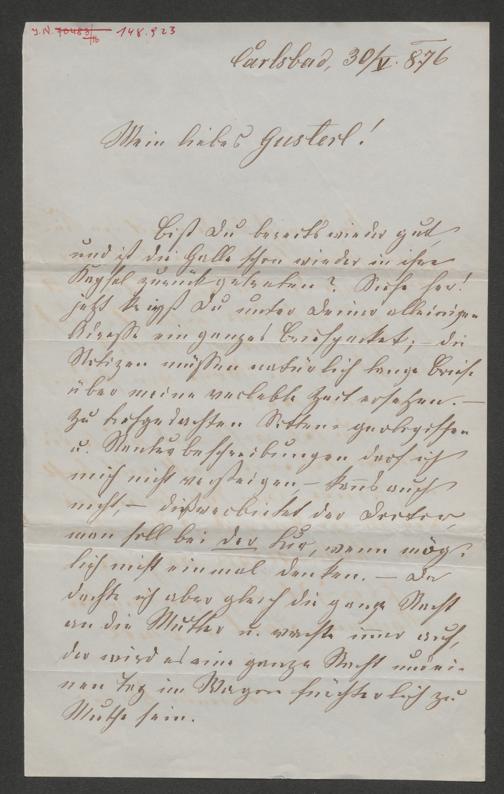 J.N. 70483/76 148.923
Carlsbad, 30/V. 876
Mein liebes Gusterl!
Bist Du bereits wieder gut,
und ist die Galle schon wieder in ihre
Kapsel zurückgetreten? Siehe her!
jetzt Du unter Deiner alleinigen
Adresse ein ganzes Briefpacket; – die
Notizen müssen natürlich lange Briefe
über meine verlebte Zeit ersetzen. –
Zu Sitten- geologischen
u. beschreibungen darf ich
mich nicht versteigen – kanns auch
nicht, – dieß verbietet der Doctor,
man soll bei der Kur, wenn mög-
lich nicht einmal denken. – Da
dachte ich aber gleich die ganze Nacht
an die Mutter u. wachte immer auf,
der wird es eine ganze Nacht und ei-
nen Tag im Wagen fürchterlich zu
Muthe sein.